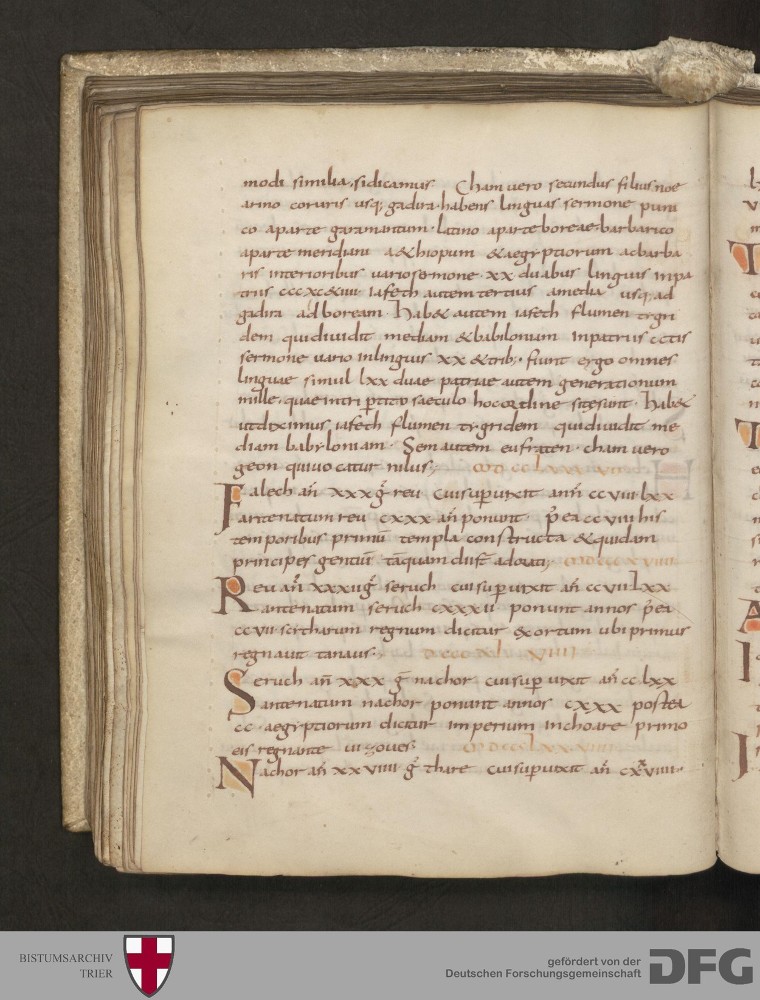 modi similia, sidicamus Cham uero secundus filius noe
arno coruris usq; gadira habens linguas sermone puni
co aparte garamantum · latino aparte boreae · barbarico
aparte meridiani a&hiopum &aegyptiorum ac barba
ris interioribus uario sermone · xx duabus linguis inpa
triis cccxc&iiii · iafeth autem tertius amedia usq; ad
gadira ad boream · Hab& autem iafeth flumen tygri
dem qui diuidit mediam &babiloniam inpatriis cctis
sermone uario inlinguis xx &trib; · fiunt ergo omnes
linguae simul lxx duae patriae autem generationum
mille · quae intri saeculo hoc ordine sitesunt · Hab&
utdiximus iafeth flumen tygridem qui diuidit me
diam babyloniam · Sem autem eufraten · cham uero
geon qui uocatur nilus;
Falech añ xxx g̃ reu cui sup uixit ann ccviiii lxx
antenatum reu cxxx añ ponunt · p̃ ea ccviiii his
temporibus primũ templa constructa &quidam
principes gentiũ tãquam dii adorati;
Reu añ xxxii g̃ seruch cui sup uixit añ ccvii Lxx
antenatum seruch cxxxii ponunt annos p̃ ea
ccvii scitharum regnum dicitur exortum ubi primus
regnauit tanaus ·
Seruch añ xxx g̃ nachor cui sup uixit añ cc lxx
antenatum nachor ponunt annos cxxx postea
cc · aegyptiorum dicitur imperium inchoare primo
eis regnante
Nachor añ xxviiii g̃ thare cui sup uixit añ
BISTUMSARCHIV
TRIER
gefördert von der
Deutschen Forschungsgemeinschaft
DFG